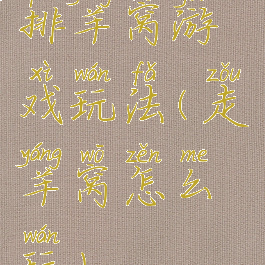 排羊窝游
xì wán fǎ zǒu
戏玩法(走
yáng wō zěn me
羊窝怎么
wán
玩)